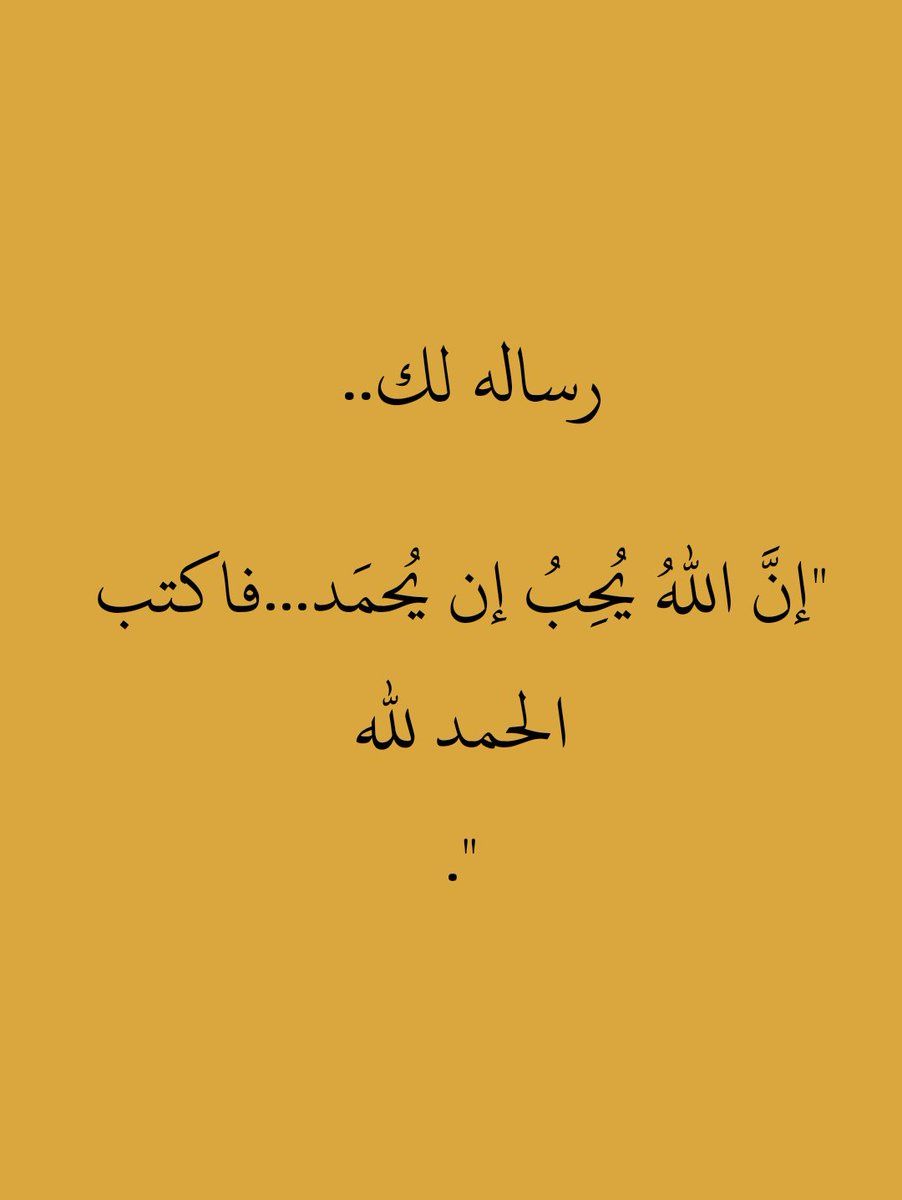 رساله لك..
"إنَّ اللهُ يُحِبُ إن يُحمَد...فاكتب
الحمد لله
".